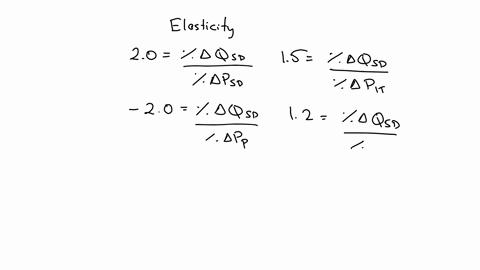 Elasticity
2.0 = % Δ Q_SD / % Δ P_SD
1.5 = % Δ Q_SD / % Δ P_IT
- 2.0 = % Δ Q_SD / % Δ P_P
1.2 = % Δ Q_SD / %